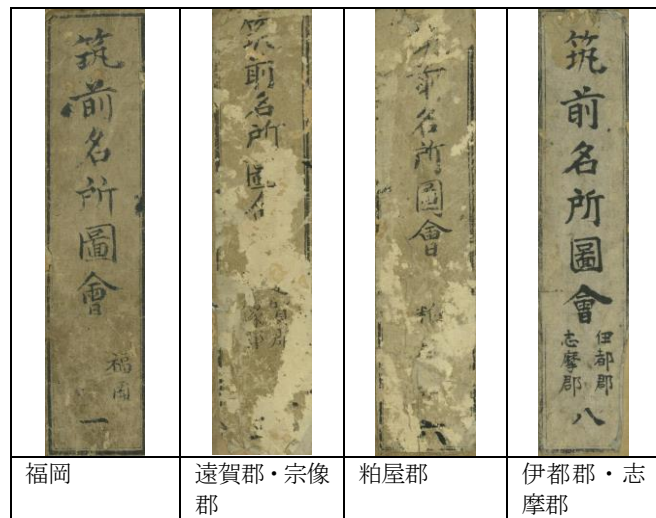 筑前名所圖會
福岡
一
前名所
筑前名所圖會
六
筑前名所圖會
伊都郡
志摩郡
八
福岡
遠賀郡・宗像
郡
粕屋郡
伊都郡・志
摩郡